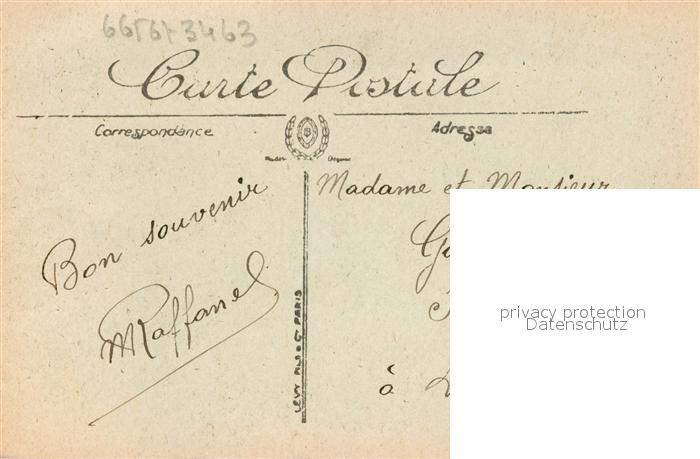 665673463
Carte Postale
Correspondance
Adresse
Bon souvenir
MRaffanel
LEVY FILS & Cie PARIS
Madame et Monsieur
à
privacy protection
Datenschutz